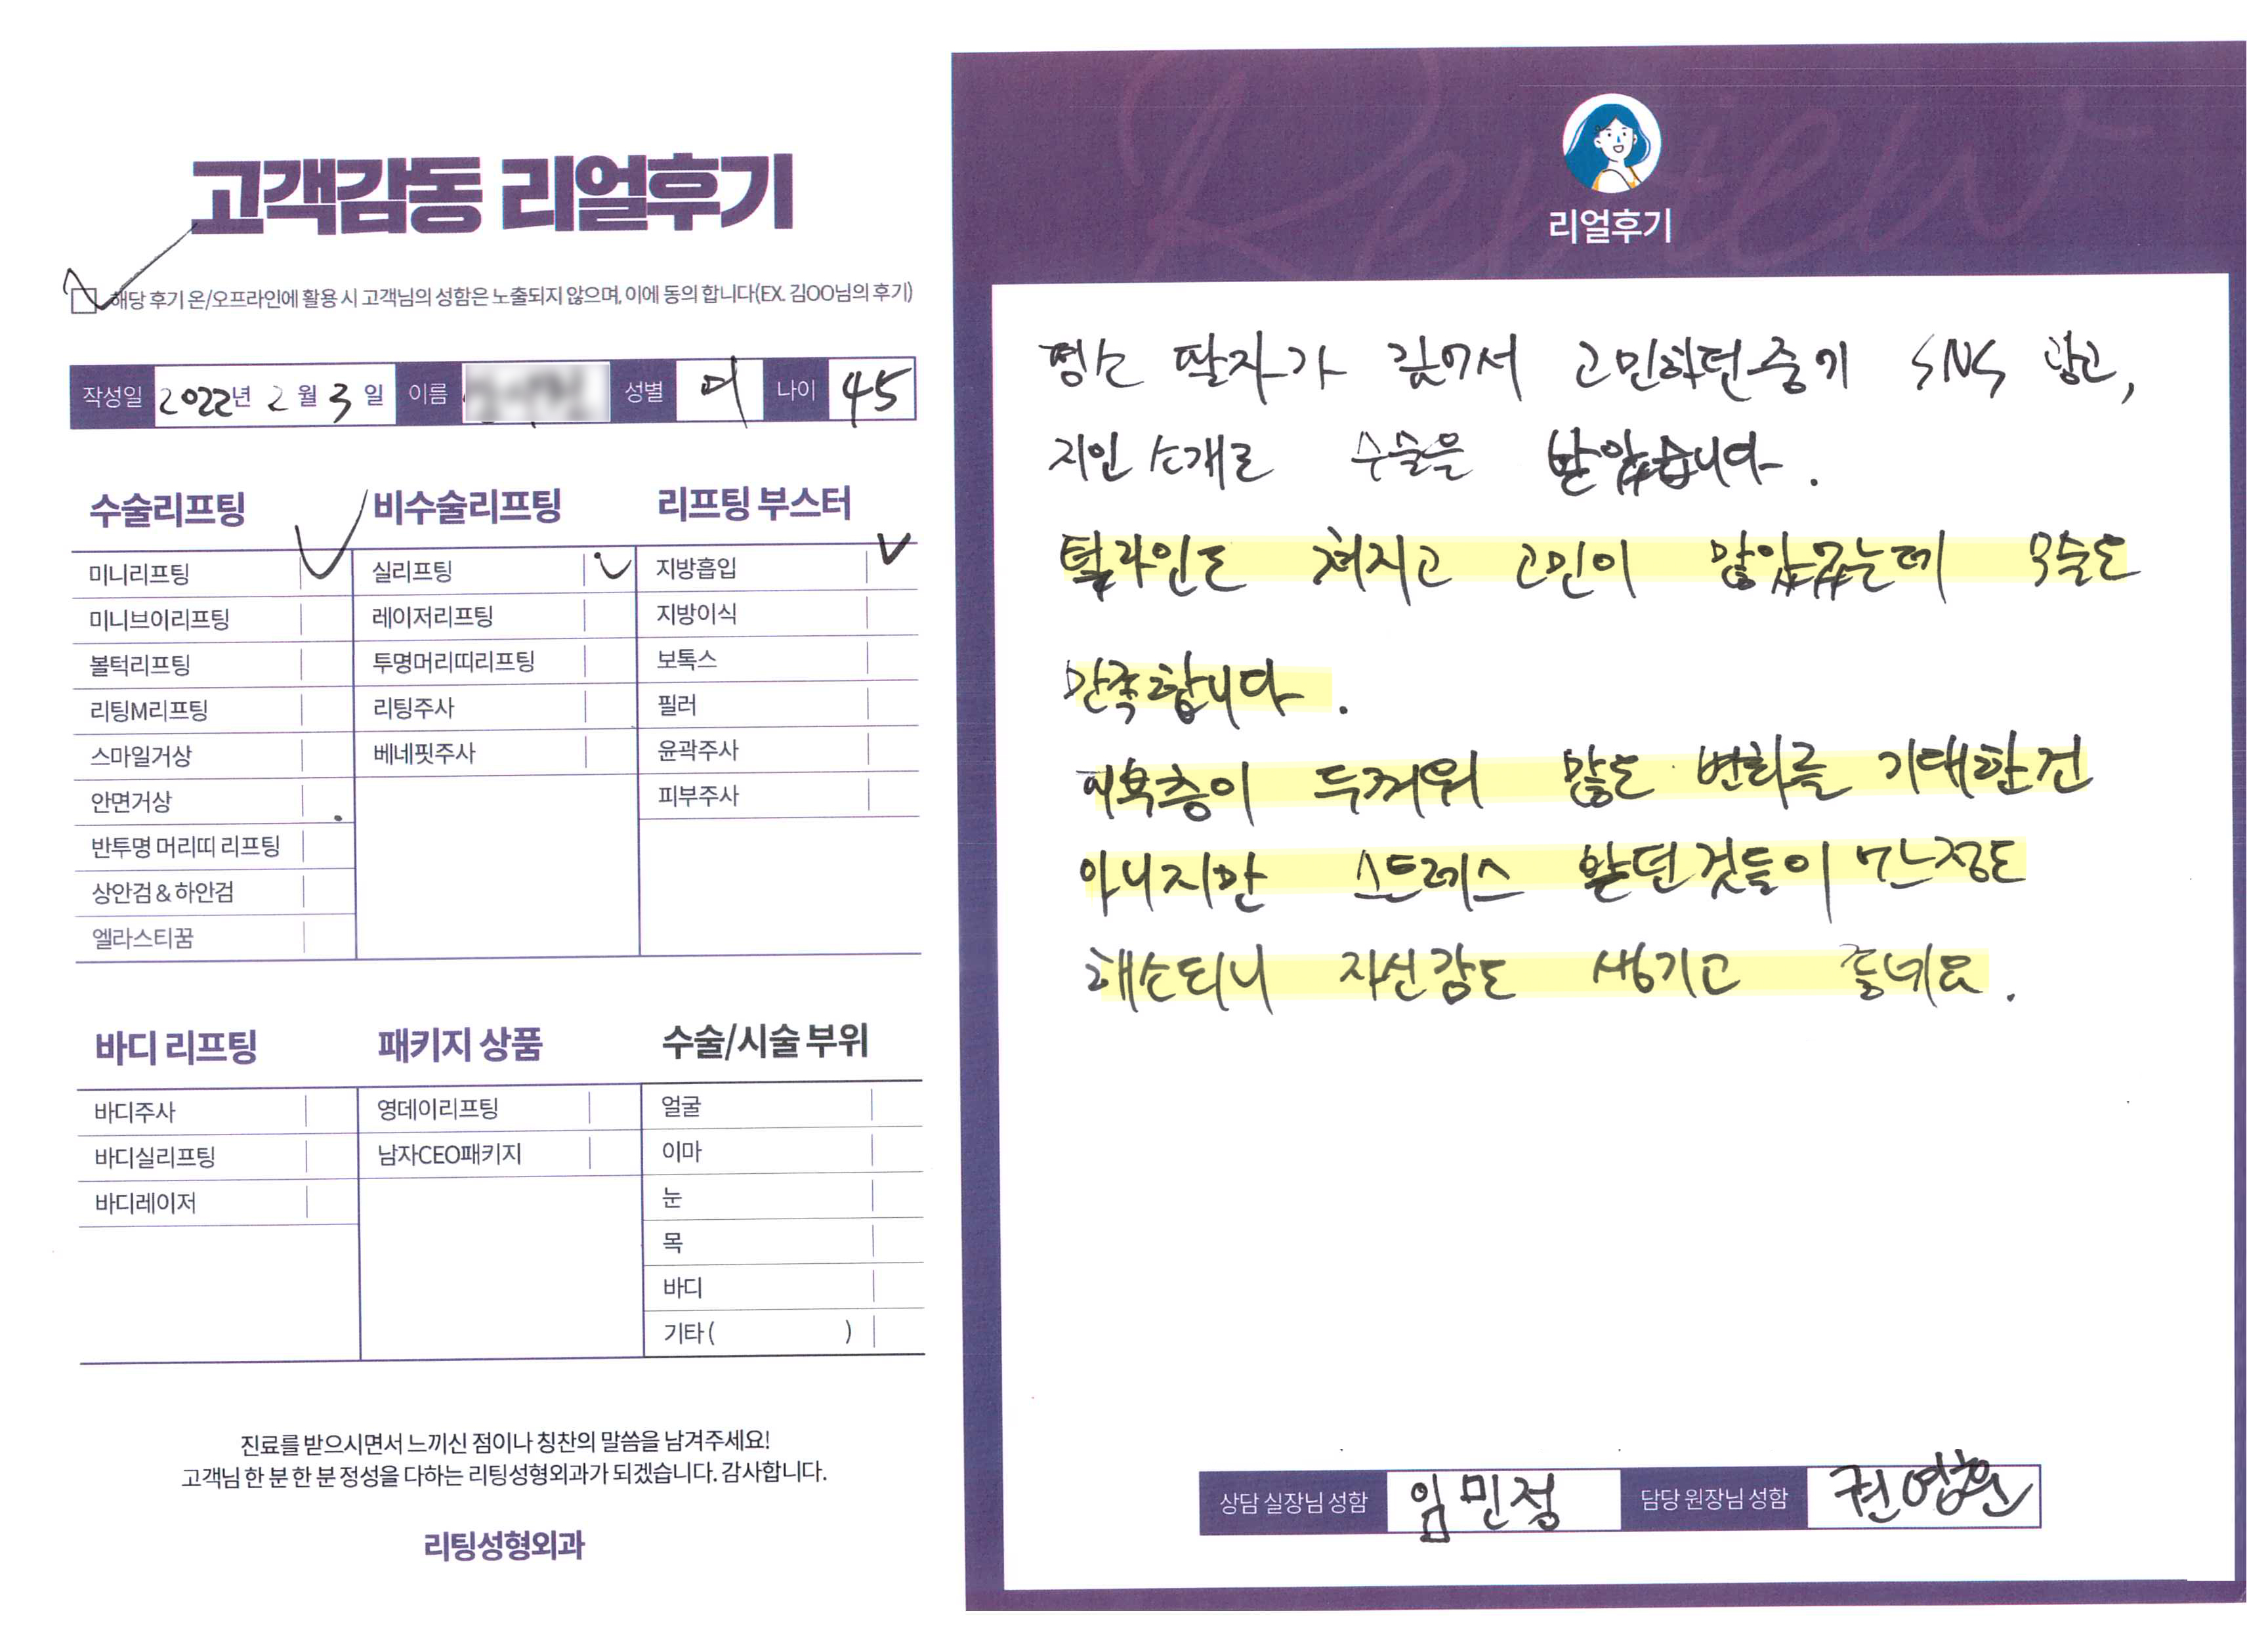 고객감동 리얼후기
해당 후기 온/오프라인에 활용 시 고객님의 성함은 노출되지 않으며, 이에 동의 합니다(EX. 김OO님의 후기)
작성일 2022년 2월 3일 이름 성별 여 나이 45
수술리프팅
미니리프팅
미니브이리프팅
볼턱리프팅
리팅M리프팅
스마일거상
안면거상
반투명 머리띠 리프팅
상안검 & 하안검
엘라스티꿈
비수술리프팅
실리프팅
레이저리프팅
투명머리띠리프팅
리팅주사
베네핏주사
리프팅 부스터
지방흡입
지방이식
보톡스
필러
윤곽주사
피부주사
바디 리프팅
바디주사
바디실리프팅
바디레이저
패키지 상품
영데이리프팅
남자CEO패키지
수술/시술 부위
얼굴
이마
눈
목
바디
기타 ( )
진료를 받으시면서 느끼신 점이나 칭찬의 말씀을 남겨주세요!
고객님 한 분 한 분 정성을 다하는 리팅성형외과가 되겠습니다. 감사합니다.
리팅성형외과
Review
리얼후기
평소 팔자가 깊어서 고민하던중에 SNS 광고,
지인 소개로 수술을 받았습니다.
턱라인도 쳐지고 고민이 많았는데 수술도
만족합니다.
피부층이 두꺼워 많은 변화를 기대한건
아니지만 스트레스 받던것들이 어느정도
해소되니 자신감도 생기고 좋네요.
상담 실장님 성함 임민정 담당 원장님 성함 권영환